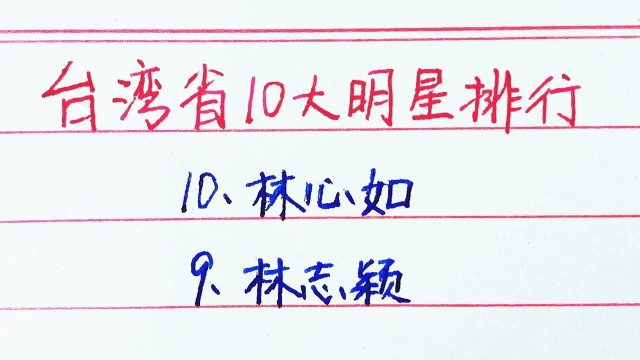 台湾省10大明星排行
10、林心如
9、林志颖